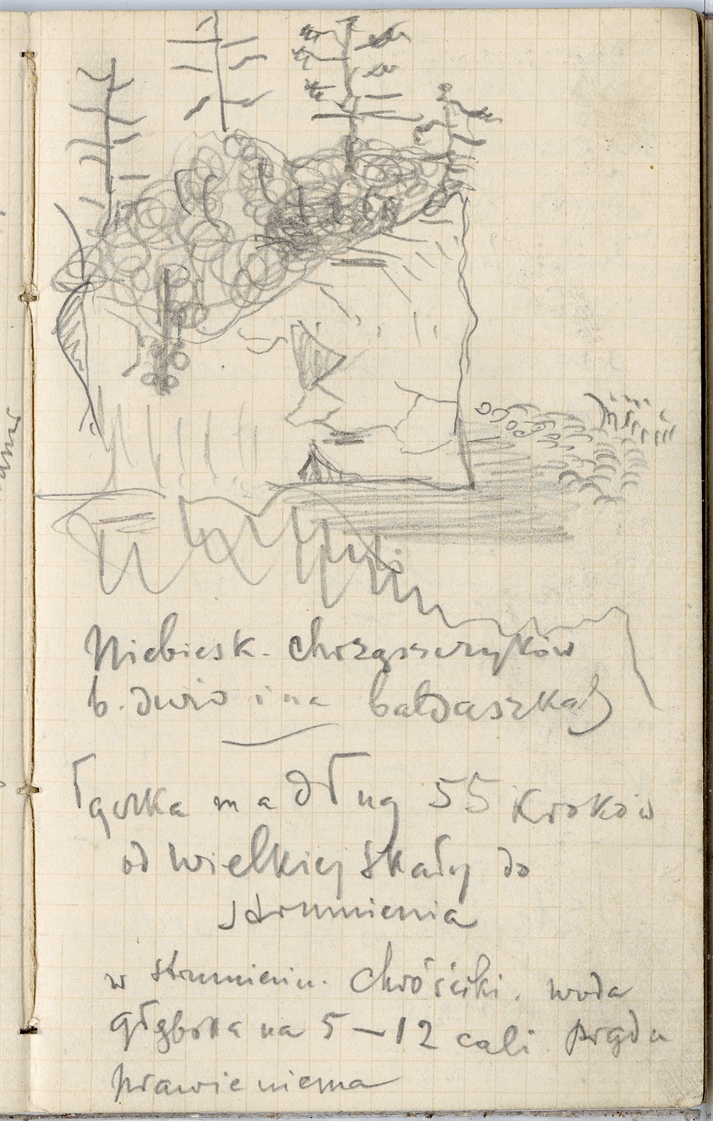 Niebiesk. chrząszczyków
b. dużo i na baldaszkach
Łączka ma dług 55 kroków
od wielkiej skały do
strumienia
w strumieniu. chróściki. woda
głęboka na 5–12 cali prądu
prawie niema